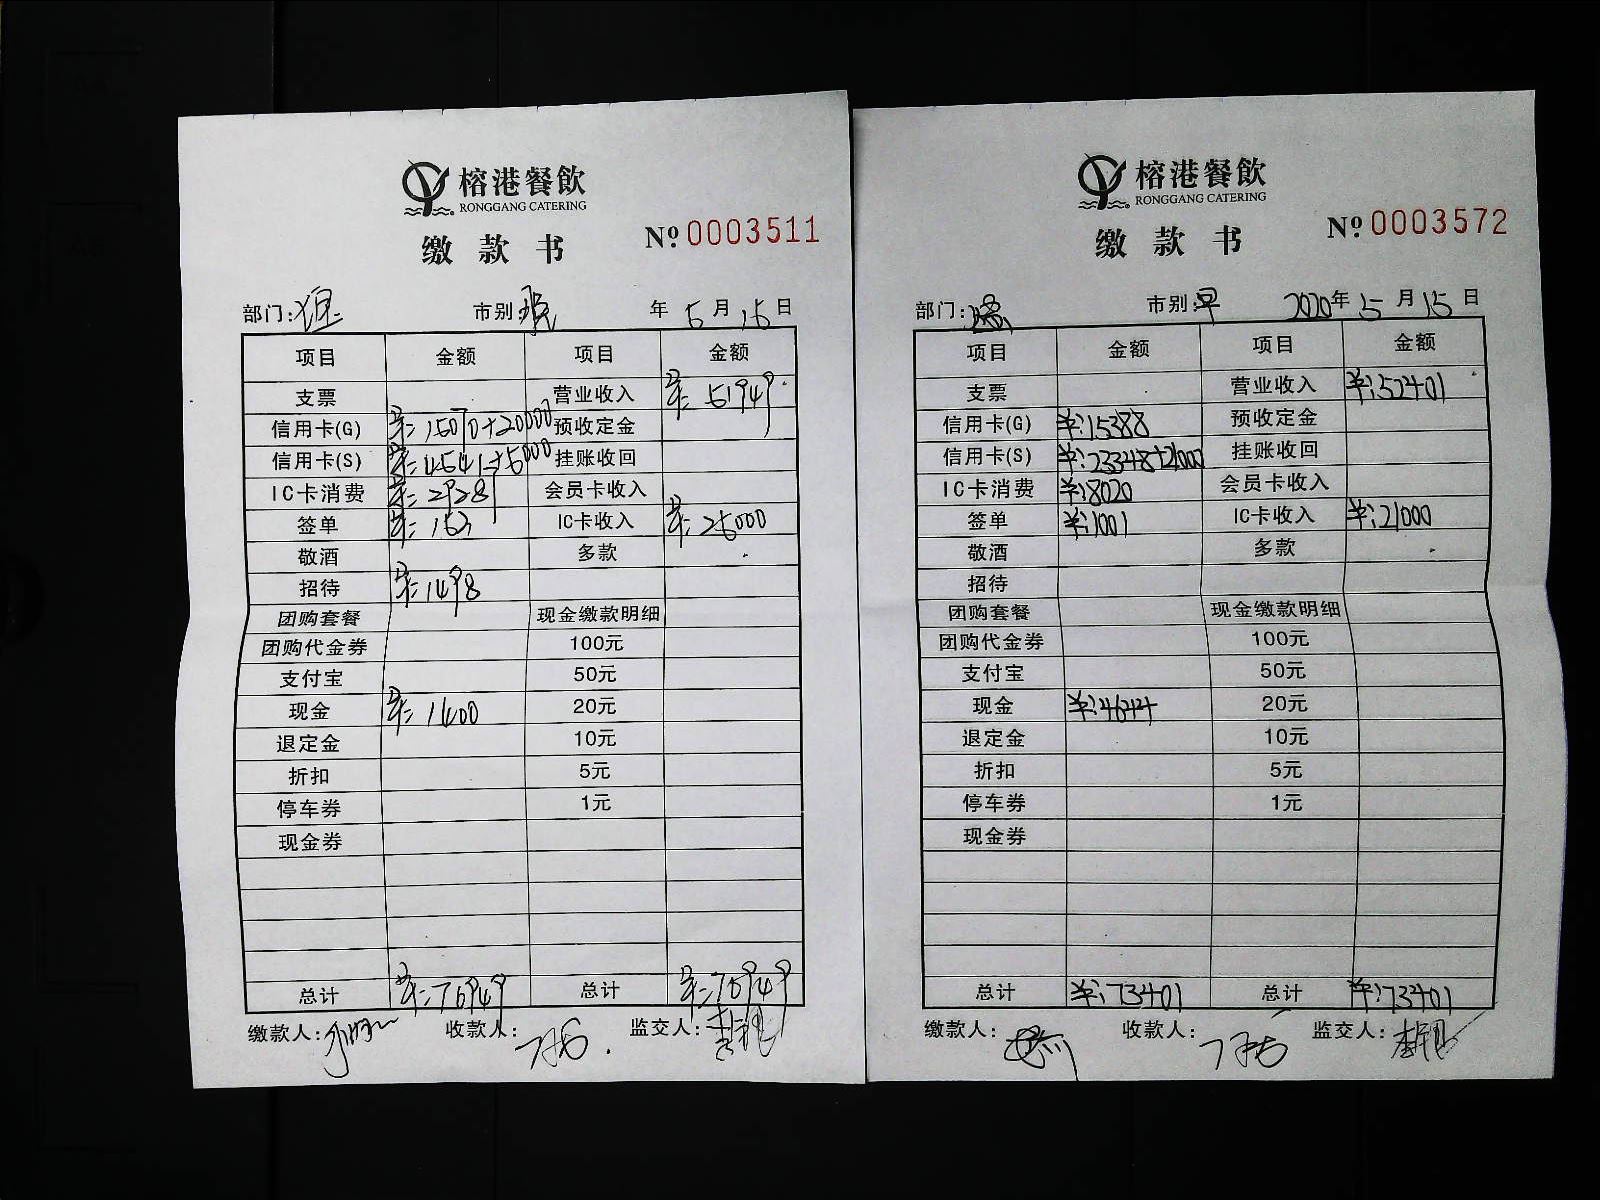 榕港餐飲
RONGGANG CATERING
缴款书
№ 0003511
部门: 市别: 晚 年 5 月 15 日
项目 金额 项目 金额
支票 营业收入 ¥: 51949
信用卡(G) ¥: 15070+20000 预收定金
信用卡(S) ¥: 4541+5000 挂账收回
IC卡消费 会员卡收入
签单 ¥: IC卡收入 ¥: 25000
敬酒 多款
招待 ¥: 1498
团购套餐 现金缴款明细
团购代金券 100元
支付宝 50元
现金 ¥: 1400 20元
退定金 10元
折扣 5元
停车券 1元
现金券
总计 ¥: 76949 总计 ¥: 76949
缴款人: 收款人: 监交人:
榕港餐飲
RONGGANG CATERING
缴款书
№ 0003572
部门: 市别: 早 2020年 5 月 15 日
项目 金额 项目 金额
支票 营业收入 ¥:52401
信用卡(G) ¥:15388 预收定金
信用卡(S) ¥:23348+21000 挂账收回
IC卡消费 ¥:8020 会员卡收入
签单 ¥:1001 IC卡收入 ¥:21000
敬酒 多款
招待
团购套餐 现金缴款明细
团购代金券 100元
支付宝 50元
现金 ¥:4644 20元
退定金 10元
折扣 5元
停车券 1元
现金券
总计 ¥:73401 总计 ¥:73401
缴款人: 收款人: 监交人: